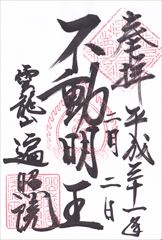 奉拝
平成二十一年
二月二日
不動明王
雲龍山
遍照院